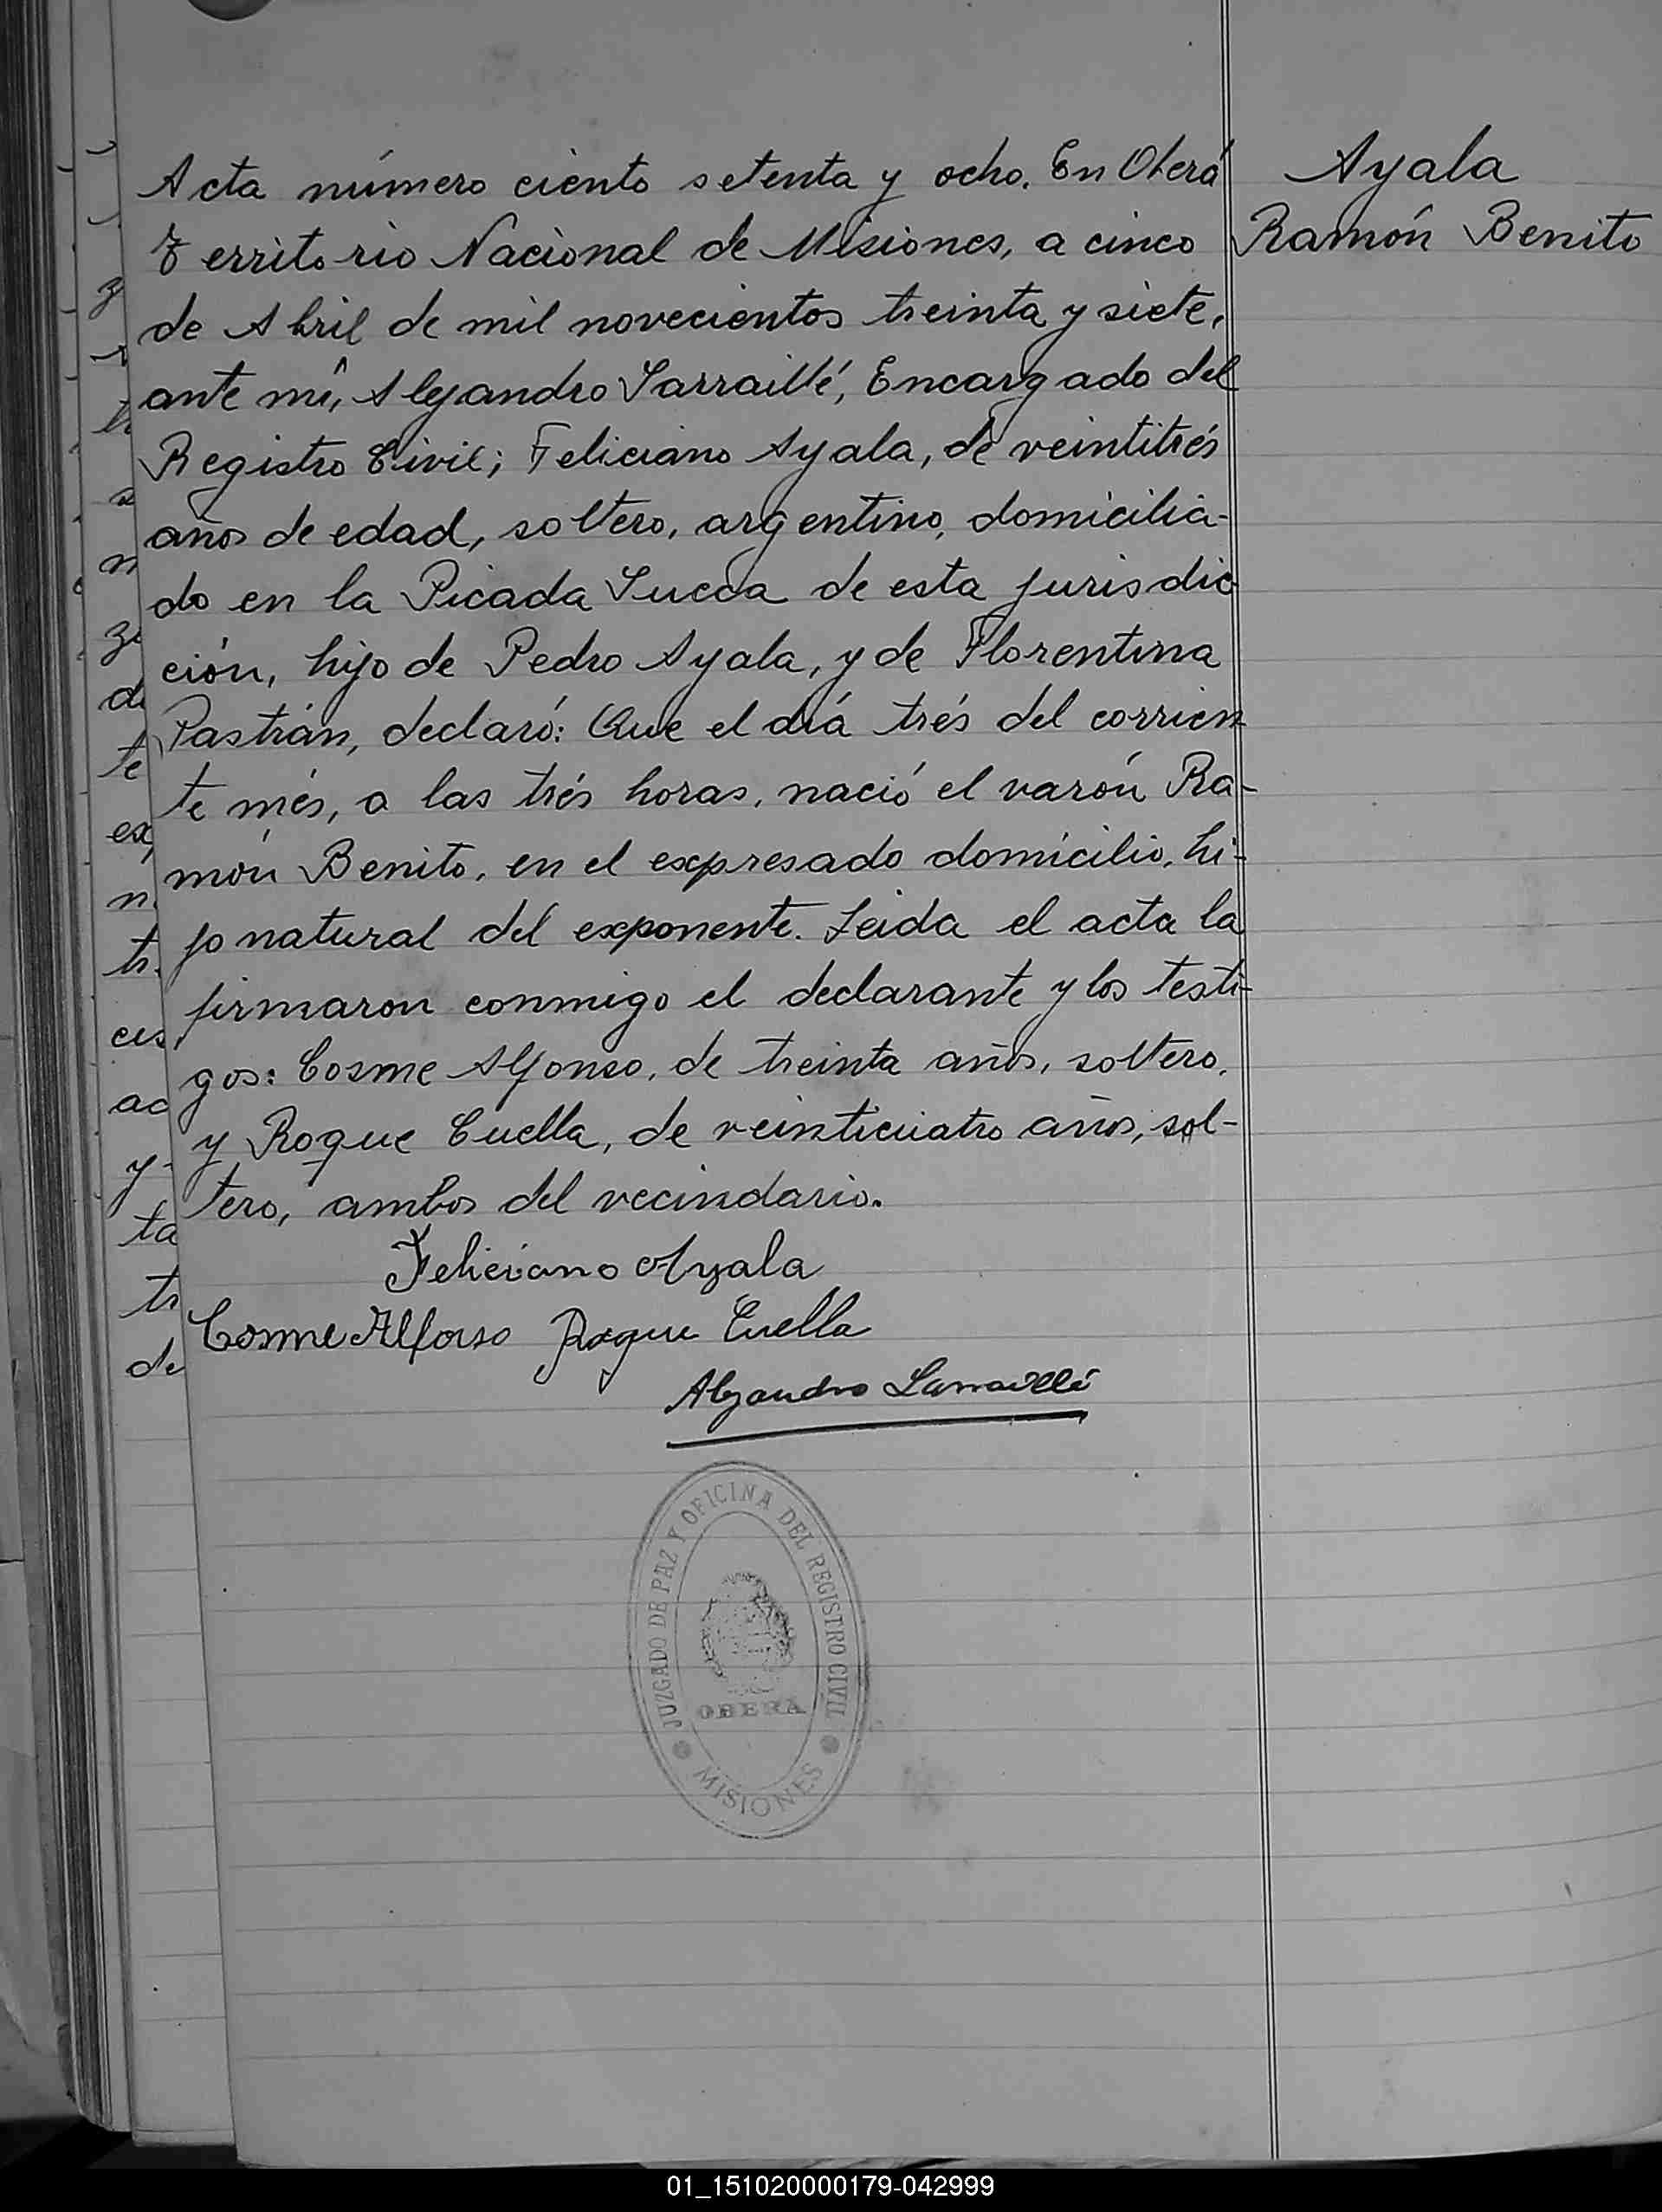 Ayala
Ramón Benito
Acta número ciento setenta y ocho. En Oberá
Territorio Nacional de Misiones, a cinco
de Abril de mil novecientos treinta y siete,
ante mí, Alejandro Sarraillé, Encargado del
Registro Civil; Feliciano Ayala, de veintitrés
años de edad, soltero, argentino, domicilia-
do en la Picada Sueca de esta jurisdic
ción, hijo de Pedro Ayala, y de Florentina
Pastrán, declaró: Que el día trés del corrien
te més, a las trés horas, nació el varón Ra-
món Benito, en el expresado domicilio, hi-
jo natural del exponente. Leida el acta la
firmaron conmigo el declarante y los testi-
gos: Cosme Alfonso, de treinta años, soltero,
y Roque Cuella, de veinticuatro años, sol-
tero, ambos del vecindario.
Feliciano Ayala
Cosme Alfonso Roque Cuella
Alejandro Sarraillé
JUZGADO DE PAZ Y OFICINA DEL REGISTRO CIVIL
OBERA
MISIONES
01_151020000179-042999